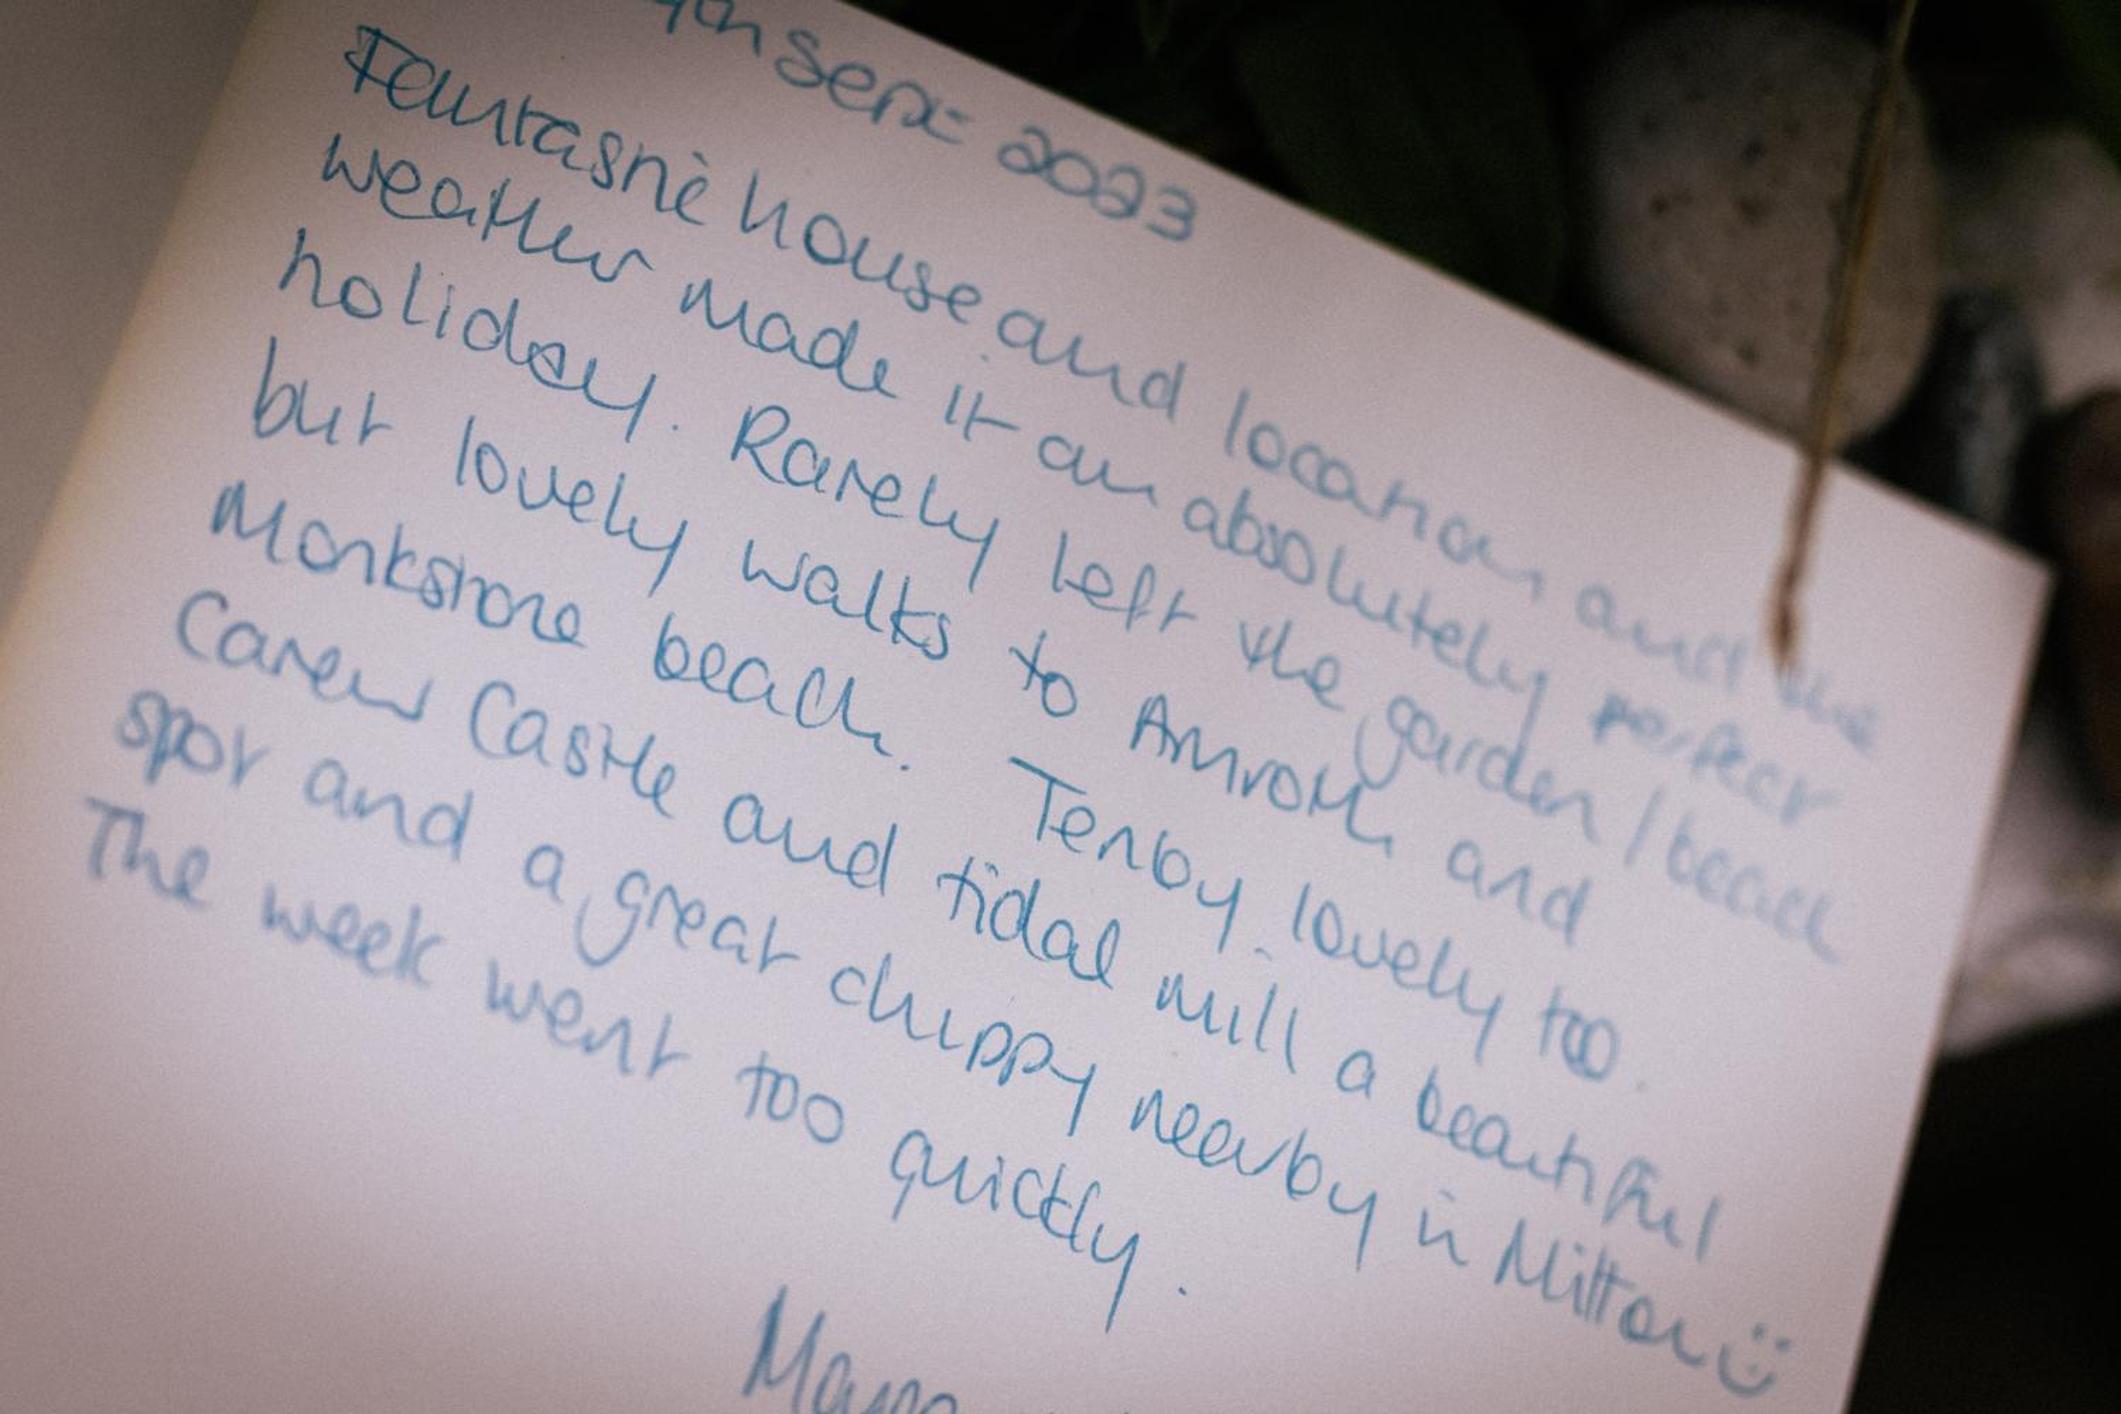 Sept 2023
Fantastic house and location, and the
weather made it an absolutely perfect
holiday. Rarely left the garden/beach
but lovely walks to Amroth and
Monkstone beach. Tenby lovely too.
Carew Castle and tidal mill a beautiful
spot and a great chippy nearby in Milton :)
The week went too quickly.